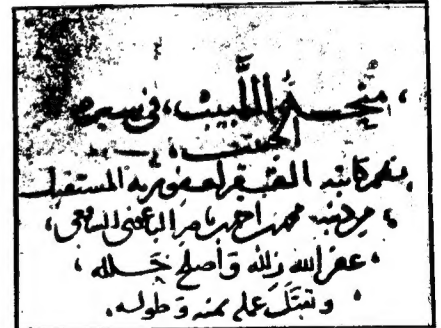 منحة اللبيب، فى سيرة
الحبيب،
بقلم كاتبه الفقير لعفو ربه المستقيل
من ذنبه محمد بن احمد بن ناصر الباعونى الشافعى،
غفر الله زلله وأصلح خلله،
وتقبل عمله بمنه وطوله.